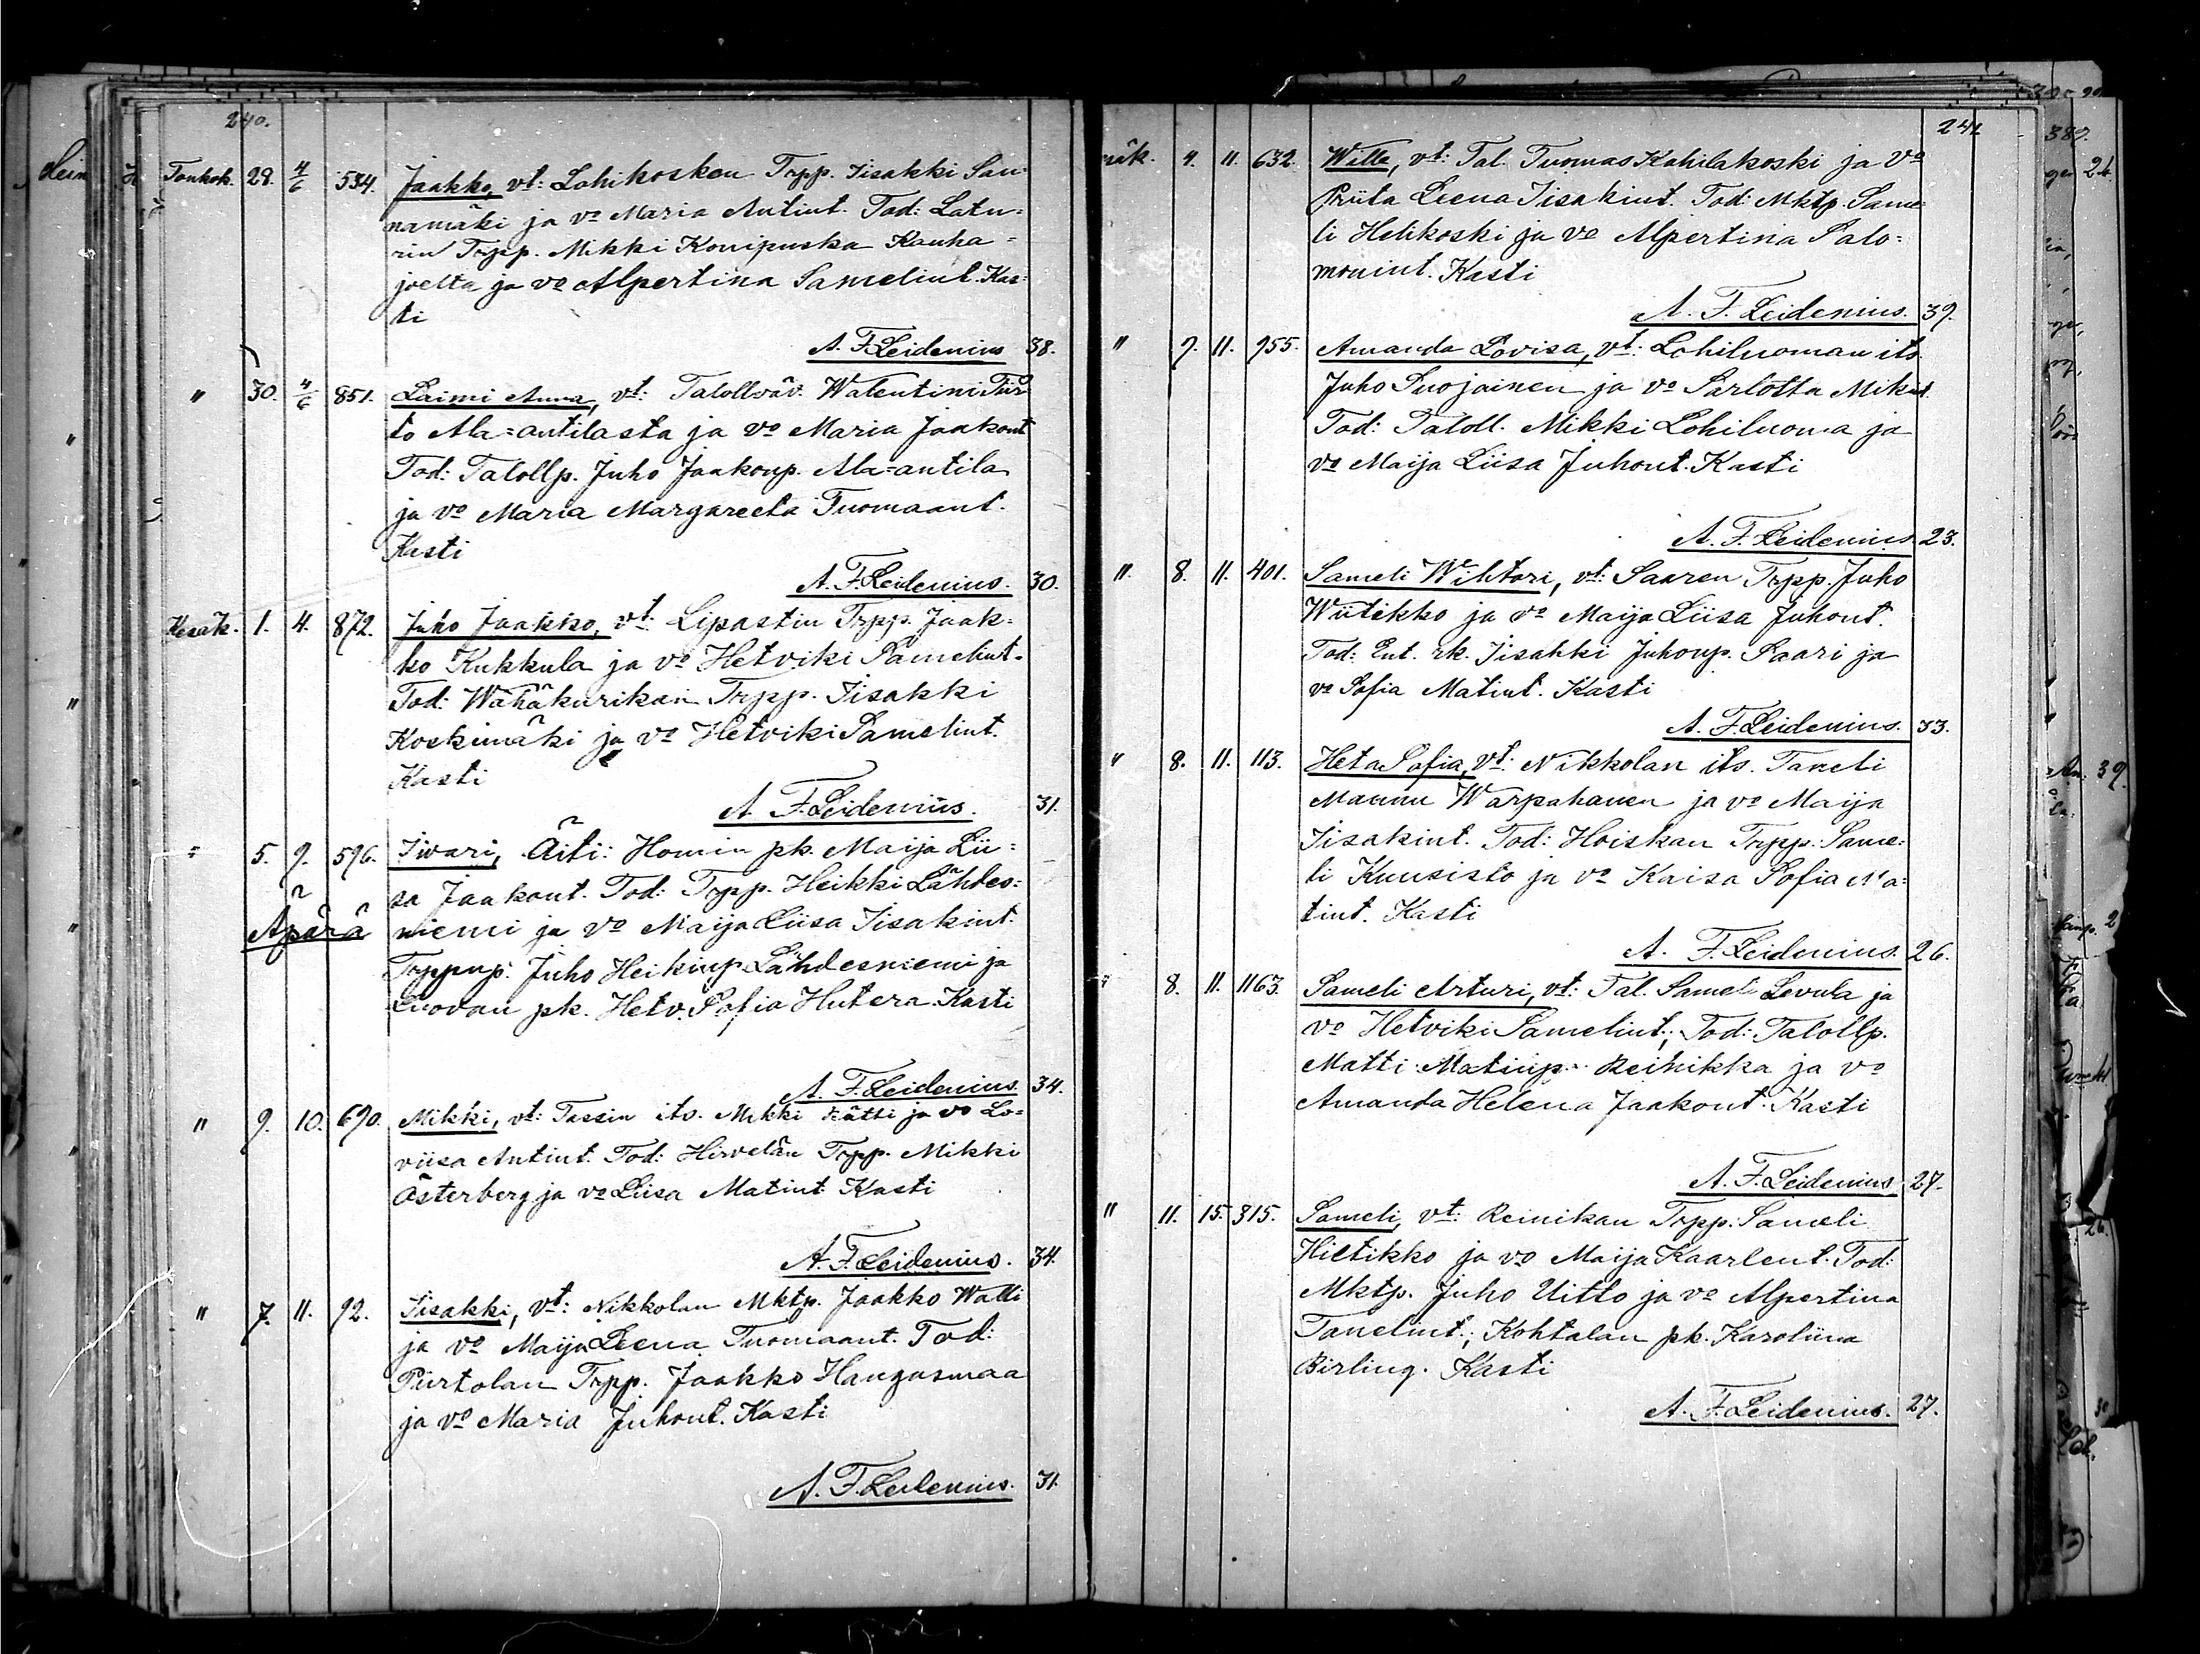 240.
Toukok. 28. 4/6 534. Jaakko, vt: Lohikosken Trpp. Iisakki San=
namäki ja vo Maria Antint. Tod: Latu=
rin Trpp. Mikki Konipuska Kauha=
joelta ja vo Alpertina Samelint. Kas=
ti
A. F. Leidenius 38.
" 30. 4/6 851. Laimi Anna, vt: Talollväv. Walentini
to Ala=antilasta ja vo Maria Jaakont
Tod: Talollp. Juho Jaakonp. Ala=antila
ja vo Maria Margareeta Tuomaant.
Kasti
A. F. Leidenius. 30.
Kesäk. 1. 4. 872. Juho Jaakko, vt: Lipastin Trpp. Jaak=
ko Kukkula ja vo Hetviki Samelint.
Tod: Wähäkurikan Trpp. Iisakki
Koskimäki ja vo Hetviki Samelint.
Kasti
A. F. Leidenius. 31.
" 5. 9. 596. Iivari, Äiti: Homin pk. Maija Lii=
Äpärä
sa Jaakont. Tod: Trpp. Heikki Lähdes=
niemi ja vo Maija Liisa Iisakint.
Trppnp. Juho Heikinp. Lähdesniemi ja
Luovan pk. Hetv. Sofia Hutera. Kasti
A. F. Leidenius. 34.
" 9. 10. 690. Mikki, vt: Tassin its. Mikki Kätti ja vo Lo=
viisa Antint. Tod: Hirvelän Trpp. Mikki
Österberg ja vo Liisa Matint. Kasti
A. F. Leidenius. 34.
" 7. 11. 92. Iisakki, vt: Nikkolan Mktp. Jaakko Walli
ja vo Maija Leena Tuomaant. Tod:
Piirtolan Trpp. Jaakko Hangasmaa
ja vo Maria Juhont. Kasti
A. F. Leidenius. 31.
241
äk. 4. 11. 632. Wille, vt: Tal. Tuomas Kahilakoski ja vo
Priita Leena Iisakint. Tod: Mktp. Same=
li Helikoski ja vo Alpertina Salo=
monint. Kasti
A. F. Leidenius. 39.
" 7. 11. 955. Amanda Lovisa, vt: Lohiluoman its
Juho Suojainen ja vo Sarlotta Mikint.
Tod: Taloll. Mikki Lohiluoma ja
vo Maija Liisa Juhont. Kasti
A. F. Leidenius. 23.
" 8. 11. 401. Sameli Wihtori, vt: Saaren Trpp. Juho
Wiitikko ja vo Maija Liisa Juhont.
Tod: Ent. rk. Iisakki Juhonp. Saari ja
vo Sofia Matint. Kasti
A. F. Leidenius. 33.
" 8. 11. 113. Heta Sofia, vt: Nikkolan its. Taneli
Mannu Warpahanen ja vo Maija
Iisakint. Tod: Hoiskan Trpp. Same=
li Kuusisto ja vo Kaisa Sofia Ma=
tint. Kasti
A. F. Leidenius. 26.
" 8. 11. 1163. Sameli Arturi, vt: Tal. Sameli Levula ja
vo Hetviki Samelint; Tod: Talollp.
Matti Matinp. Reinikka ja vo
Amanda Helena Jaakont. Kasti
A. F. Leidenius 27.
" 11. 15. 315. Sameli, vt: Reinikan Trpp: Sameli
Hietikko ja vo Maija Kaarlent. Tod:
Mktp. Juho Uitto ja vo Alpertina
Tanelint; Kohtalan pk. Karoliina
Birling. Kasti
A. F. Leidenius. 27.